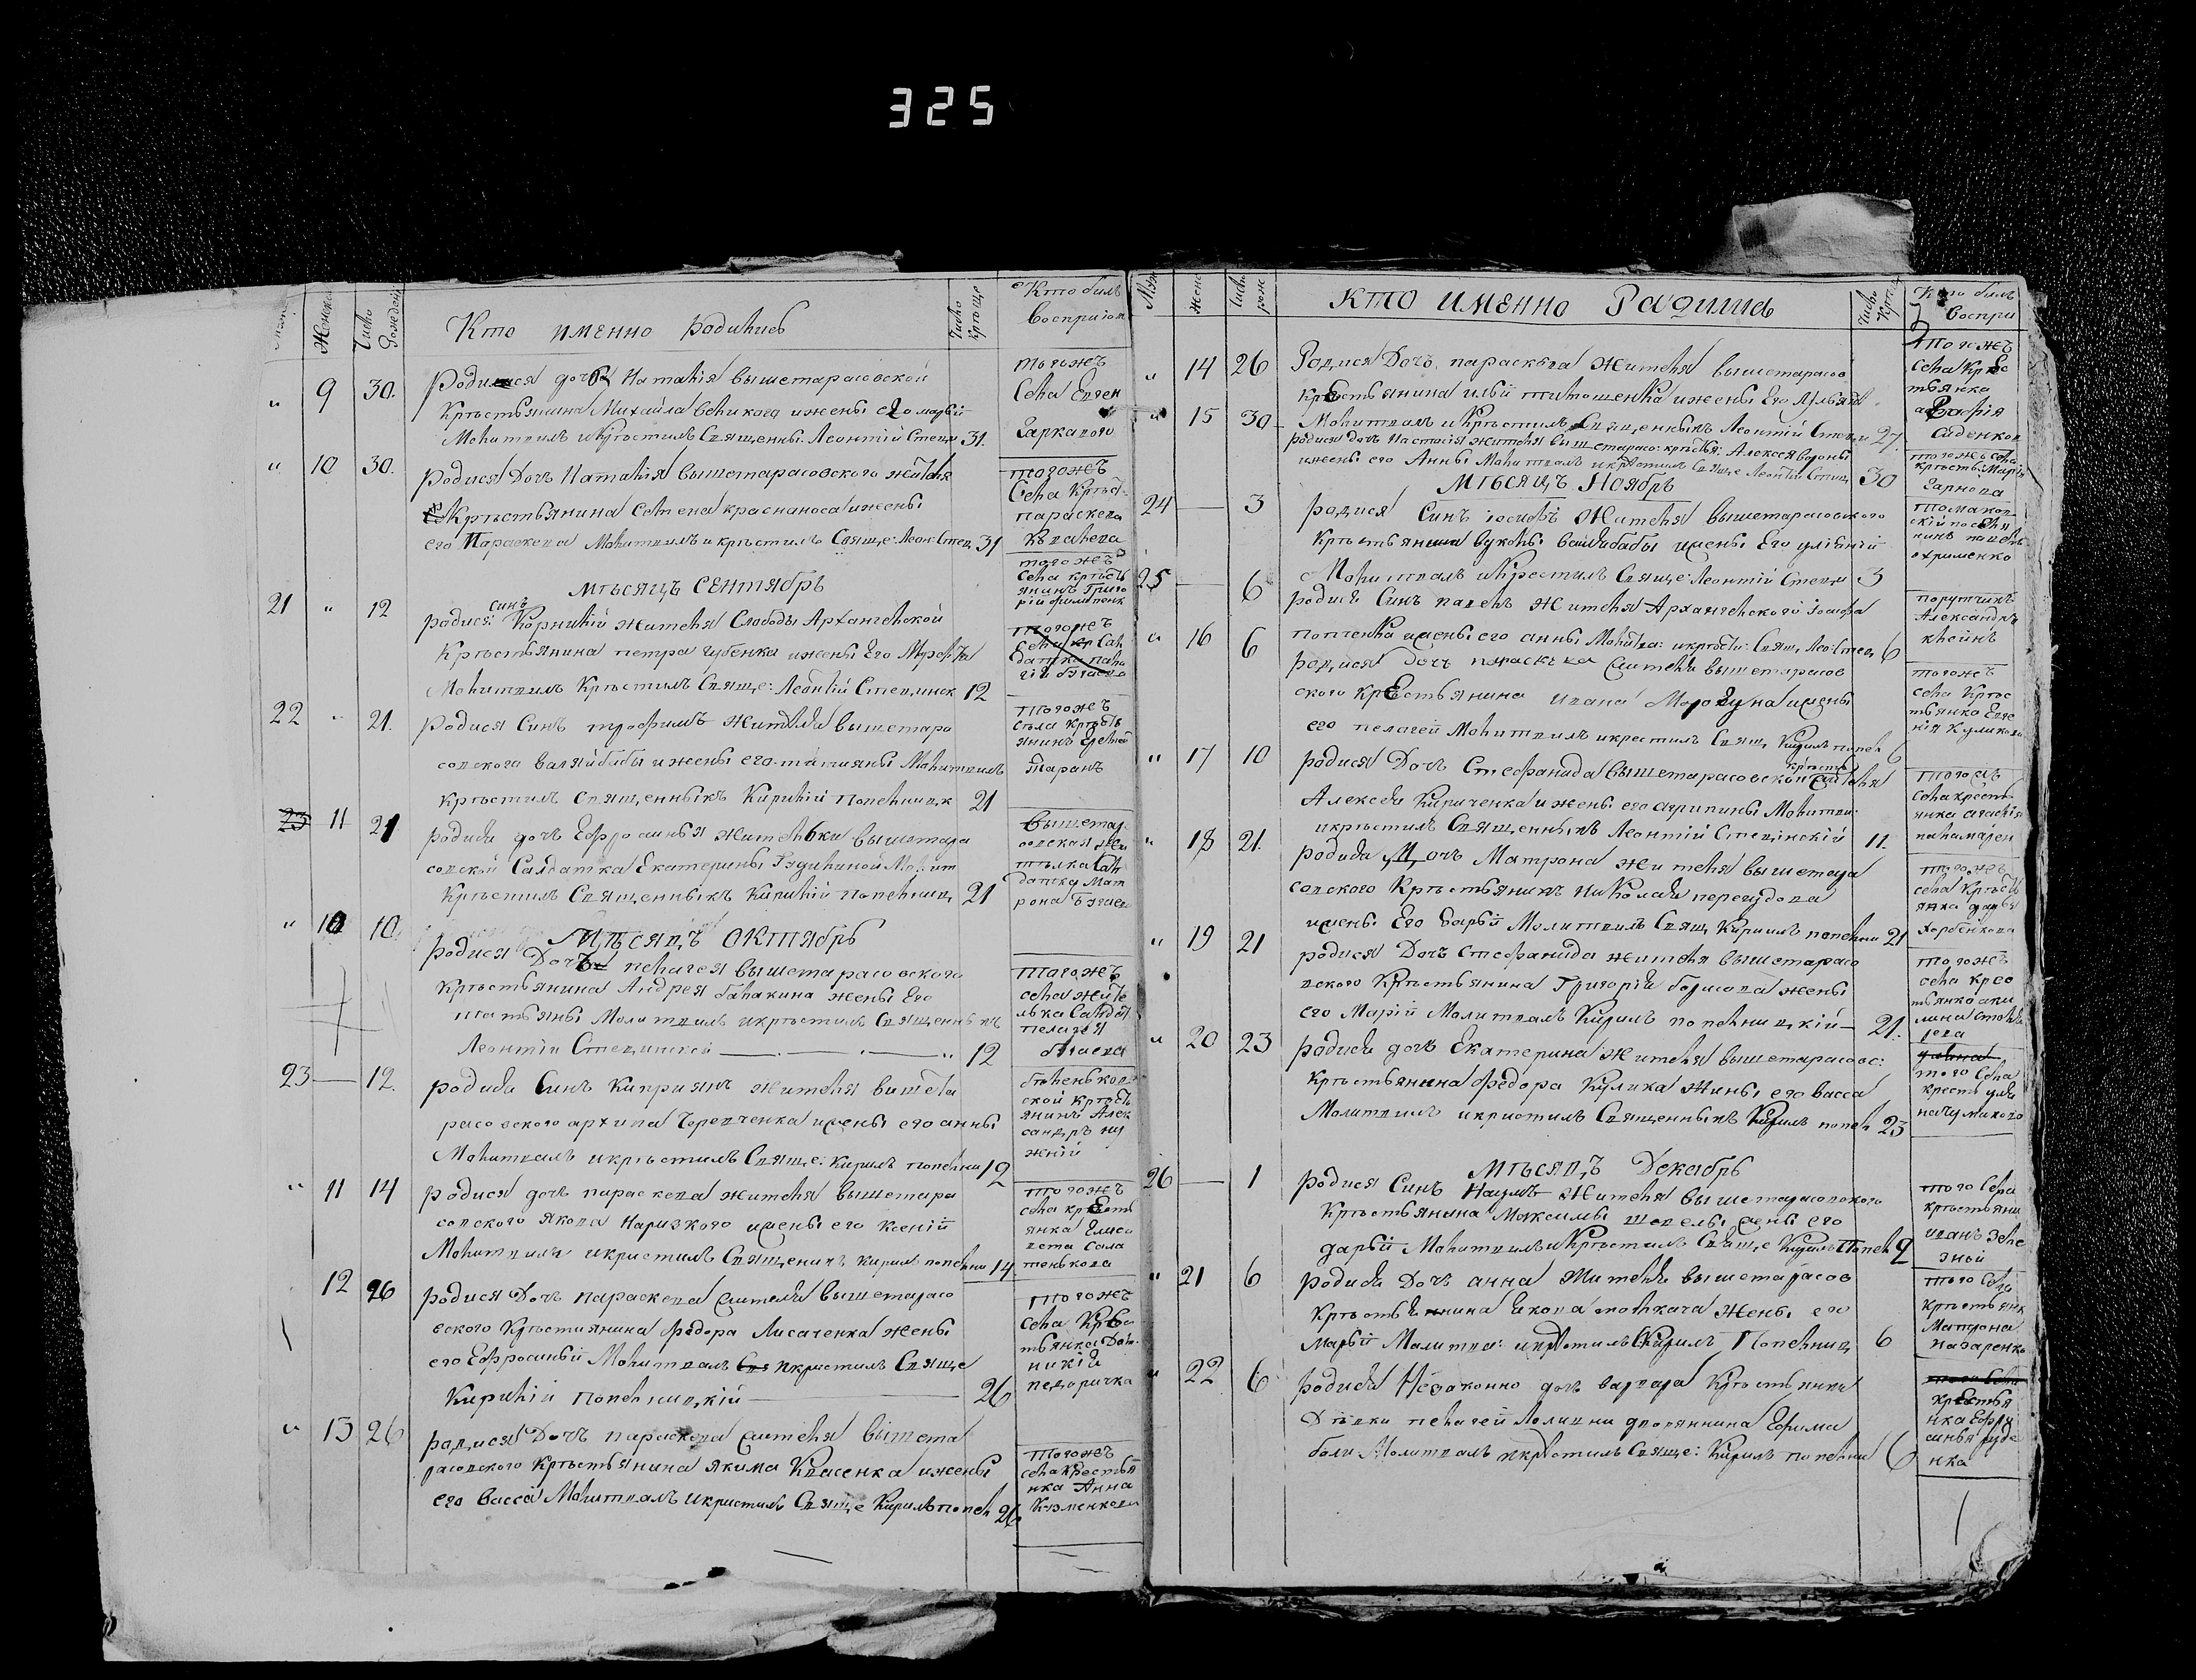 325
Женск
Число Рожден
Кто именно родились
Число Крѣще
Кто билъ
Восприем
" 9 30.
Родился дочь Наталія вышетарасовской
Крѣстьянина Михайла Великого и жены его марѣй
Молитвилъ и Крѣстилъ Священны: Леонтій Стеци 31.
тогожъ
Села Евген
Гаркавого
" 10 30.
родися Дочъ Наталія вышетарасовского жителя
Крѣстьянина Семена красна носа и жены
его Параскева Молитвилъ и крѣстилъ Свяще: Леон: Стец 31
тогожъ
Села Крѣст:
параскева
Ковалева
мѣсяцъ Сентябрь
21 " 12
синъ
родися: Корнилій жителя Слободы Архангелской
Крѣстьянина петра Губенка и жены Его Марѳ
Молитвилъ Крѣстилъ Свяще: Леонтій Стецинск 12
тогожъ
Села крѣсть
янинъ Григо
рій филипенк
тогожъ
Села кр Сал
датка пала
гія бѣгаева
22 " 21.
родися Синъ трофимъ жителя вышетара
совского валяйбабы и жены его татияны Молитвилъ
крѣстилъ священныкъ Кирилій Попелницк 21
тогожъ
села крѣсть
янинъ Евгеній
Таранъ
23 11 21
родися дочь Ефросинья жителки вышетара
совской Салдатка Екатерины Гудилиной Молит
Крѣстилъ Священныкъ Кирилій Попелниц 21
вышетар
совская жи
тылка Сал
датка Мат
рона бѣгаев
" 10 10.
Мѣсяцъ Октябрь
родися Дочь пелагея вышетарасовского
Крѣстьянина Андрея балакина жены Его
татьяны Молитвилъ и крѣстилъ Священныкъ
Леонтій Стецинской " 12
тогожъ
села жите
лька Салдат
пелагея
бѣгаева
23 — 12.
родися Синъ Киприянъ жителя вишета
расовского архипа Черевченка и жены его анны
Молитвилъ и крѣстилъ Свяще: кирилъ попелни 12
бѣленьков
ской крѣсть
янинъ Алек
сандръ ни
жній
" 11 14
родися дочь параскева жителя вышетара
совского якова Наризкого и жены его ксеній
Молитвилъ и кристилъ Священикъ кирилъ попелни 14
тогожъ
села крѣсть
янка Елиса
вета Сала
тенькова
12 26
родися Дочь параскева жителя вышетарасо
вского Крѣстиянина Фѣдора Лисаченка жены
его Ефросиньй Молитвилъ и кристилъ Свяще
Кирилій Попелницкій — 26
тогожъ
села Крѣс
тьянка Дом
никія
педоричка
" 13 26
родися Дочъ параскева жителя вишета
расовского Крѣстьянина якима Квасенка и жены
его васса Молитвилъ и кристилъ Свяще Кирилъ попел 26
тогожъ
села крестья
нка Анна
Кузменкова
Муж
жен
Число рож
Кто именно Радился
Число Крѣщ
Кто билъ
Воспри
" 14 26
Родися Дочь параскева жителя вышетарасов
крѣстьянина ильи титошенка и жены Его Ульяны
Молитвилъ и Крѣстилъ Священныкъ Леонтій Стеци 27.
тогожъ
Села Крѣс
тьянка
агафія
Сиденков
" 15 30
родися дочъ Настасія жителя вышетарасо: крѣстья: Алексѣя
и жены его Анны Молитвилъ и крѣстилъ Свяще Леонтій Стеци 30
тогожъ села
крѣсть: Марія
Гарнева
Мѣсяцъ Ноябрь
24 — 3
родися Синъ іосифъ жителя вышетарасовского
Крѣстьянина вуколы валяйбабы и жены Его уліаній
Молитвилъ и Крестилъ Свяще: Леонтій Стеци 3
томаков
скій поселя
нинъ павелъ
охрименко
25 — 6
родися Синъ павелъ жителя Архангелского іосифа
попченка и жены его анны Молитви: и крѣсти: Свящ: Лео: Стец 6
порутчикъ
Александръ
клейнъ
" 16 6
родися дочъ параскева жителя вышетарасов
ского крѣстьянина ивана и жены
его пелагеи Молитвилъ и крестилъ Свящ Кирилъ попел 6
тогожъ
села Крѣс
тьянка Евге
нія Куликова
" 17 10
крѣсть
родися Дочъ Стефанида вышетарасовской жителя
Алексея Кириченка и жены его агрипины Молитви
и крѣстилъ Священныкъ Леонтій Стецінскій 11.
тогожъ
села кресть
янка
паламарен
" 18 21.
родися дочъ Матрона жителя вышетара
совского Крѣстьянинъ Николай перегудова
жены Его Варвій Молитвилъ Свящ Кирилъ попелни 21
тогожъ
села Крѣсть
янка дарья
Хорбенкова
" 19 21
родися Дочъ Стефанида жителя вышетарасо
вского Крѣстьянина Григорій борисова жены
его Марій Молитвилъ Кирилъ попелницкій — 21.
тогожъ
села крес
тьянка аки
лина столя
рева
" 20 23
родися дочъ Екатерина жителя вышетарасовс:
Крѣстьянина Фѣдора Кулика жины его васса
Молитвилъ и кристилъ Священныкъ Кирилъ попел 23
того села
кресть уля
на Чумакова
Мѣсяцъ Декабрь
26 — 1
родися Синъ Наумъ жителя вышетарасовского
Крѣстьянина Максимы шевелы жены его
дарьи Молитвилъ и Крѣстилъ Свяще Кирилъ Попел 2
того села
крѣстьяни
иванъ зеле
зной
" 21 6
родися Дочъ анна жителя вышетарасов
Крѣстьянина Якова толкача жены его
Марьи Молитви: и крѣстилъ Кирилъ Попелниц 6
того села
Крѣстьянк
Матрона
назаренко
" 22 6
родися Незаконно дочъ варвара Крѣстьянки
Дѣвки пелагеи дворянина Ефима
бали Молитвилъ и крѣстилъ Свяще: Кирилъ попелни 6
крѣстья
нка Ефро
синья руде
нка